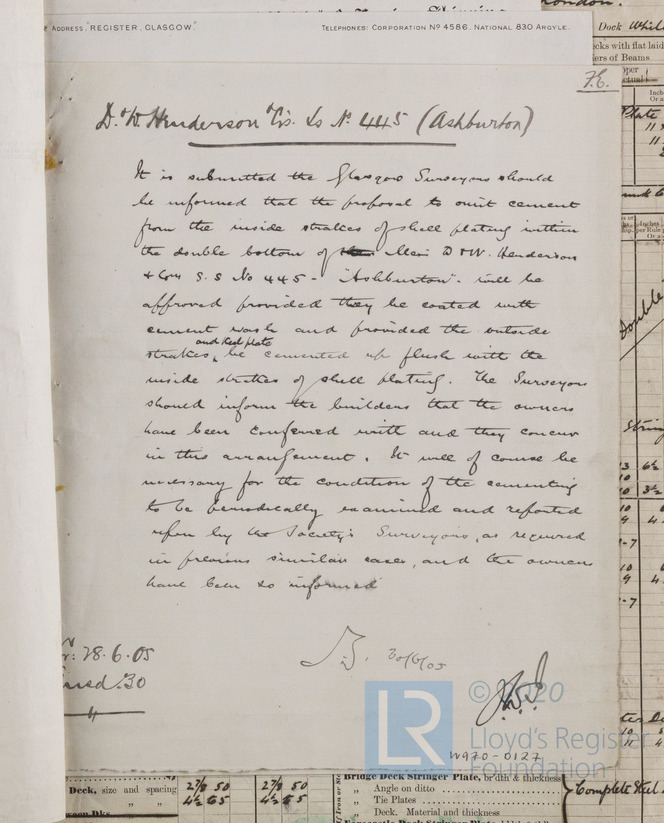 ADDRESS, "REGISTER, GLASGOW."
TELEPHONES: CORPORATION Nº 4586. NATIONAL 830 ARGYLE.
F.E.
D. & W. Henderson & Co's. Ss No. 445 (Ashburton)
It is submitted the Glasgow Surveyors should
be informed that the proposal to omit cement
from the inside strakes of shell plating within
the double bottom of Mess D & W. Henderson
& Cos S.S No 445 - "Ashburton" - will be
approved provided they be coated with
cement wash and provided the outside
and keel plate
strakes, be cemented up flush with the
inside strakes of shell plating. The Surveyors
should inform the builders that the owners
have been conferred with and they concur
in this arrangement. It will of course be
necessary for the condition of the cementing
to be periodically examined and reported
upon by the Society's Surveyors, as required
in previous similar cases, and the owners
have been so informed
28.6.05
30
30/6/05
LR
© 2020
Lloyd's Register
Foundation
W970-0127
Deck, size and spacing
2 7/8 50
2 7/8 50
Bridge Deck Stringer Plate, br'dth & thickness
Angle on ditto
Tie Plates
Deck. Material and thickness
Complete Steel
Dock
ecks with flat laid
ers of Beams
Plate
Double